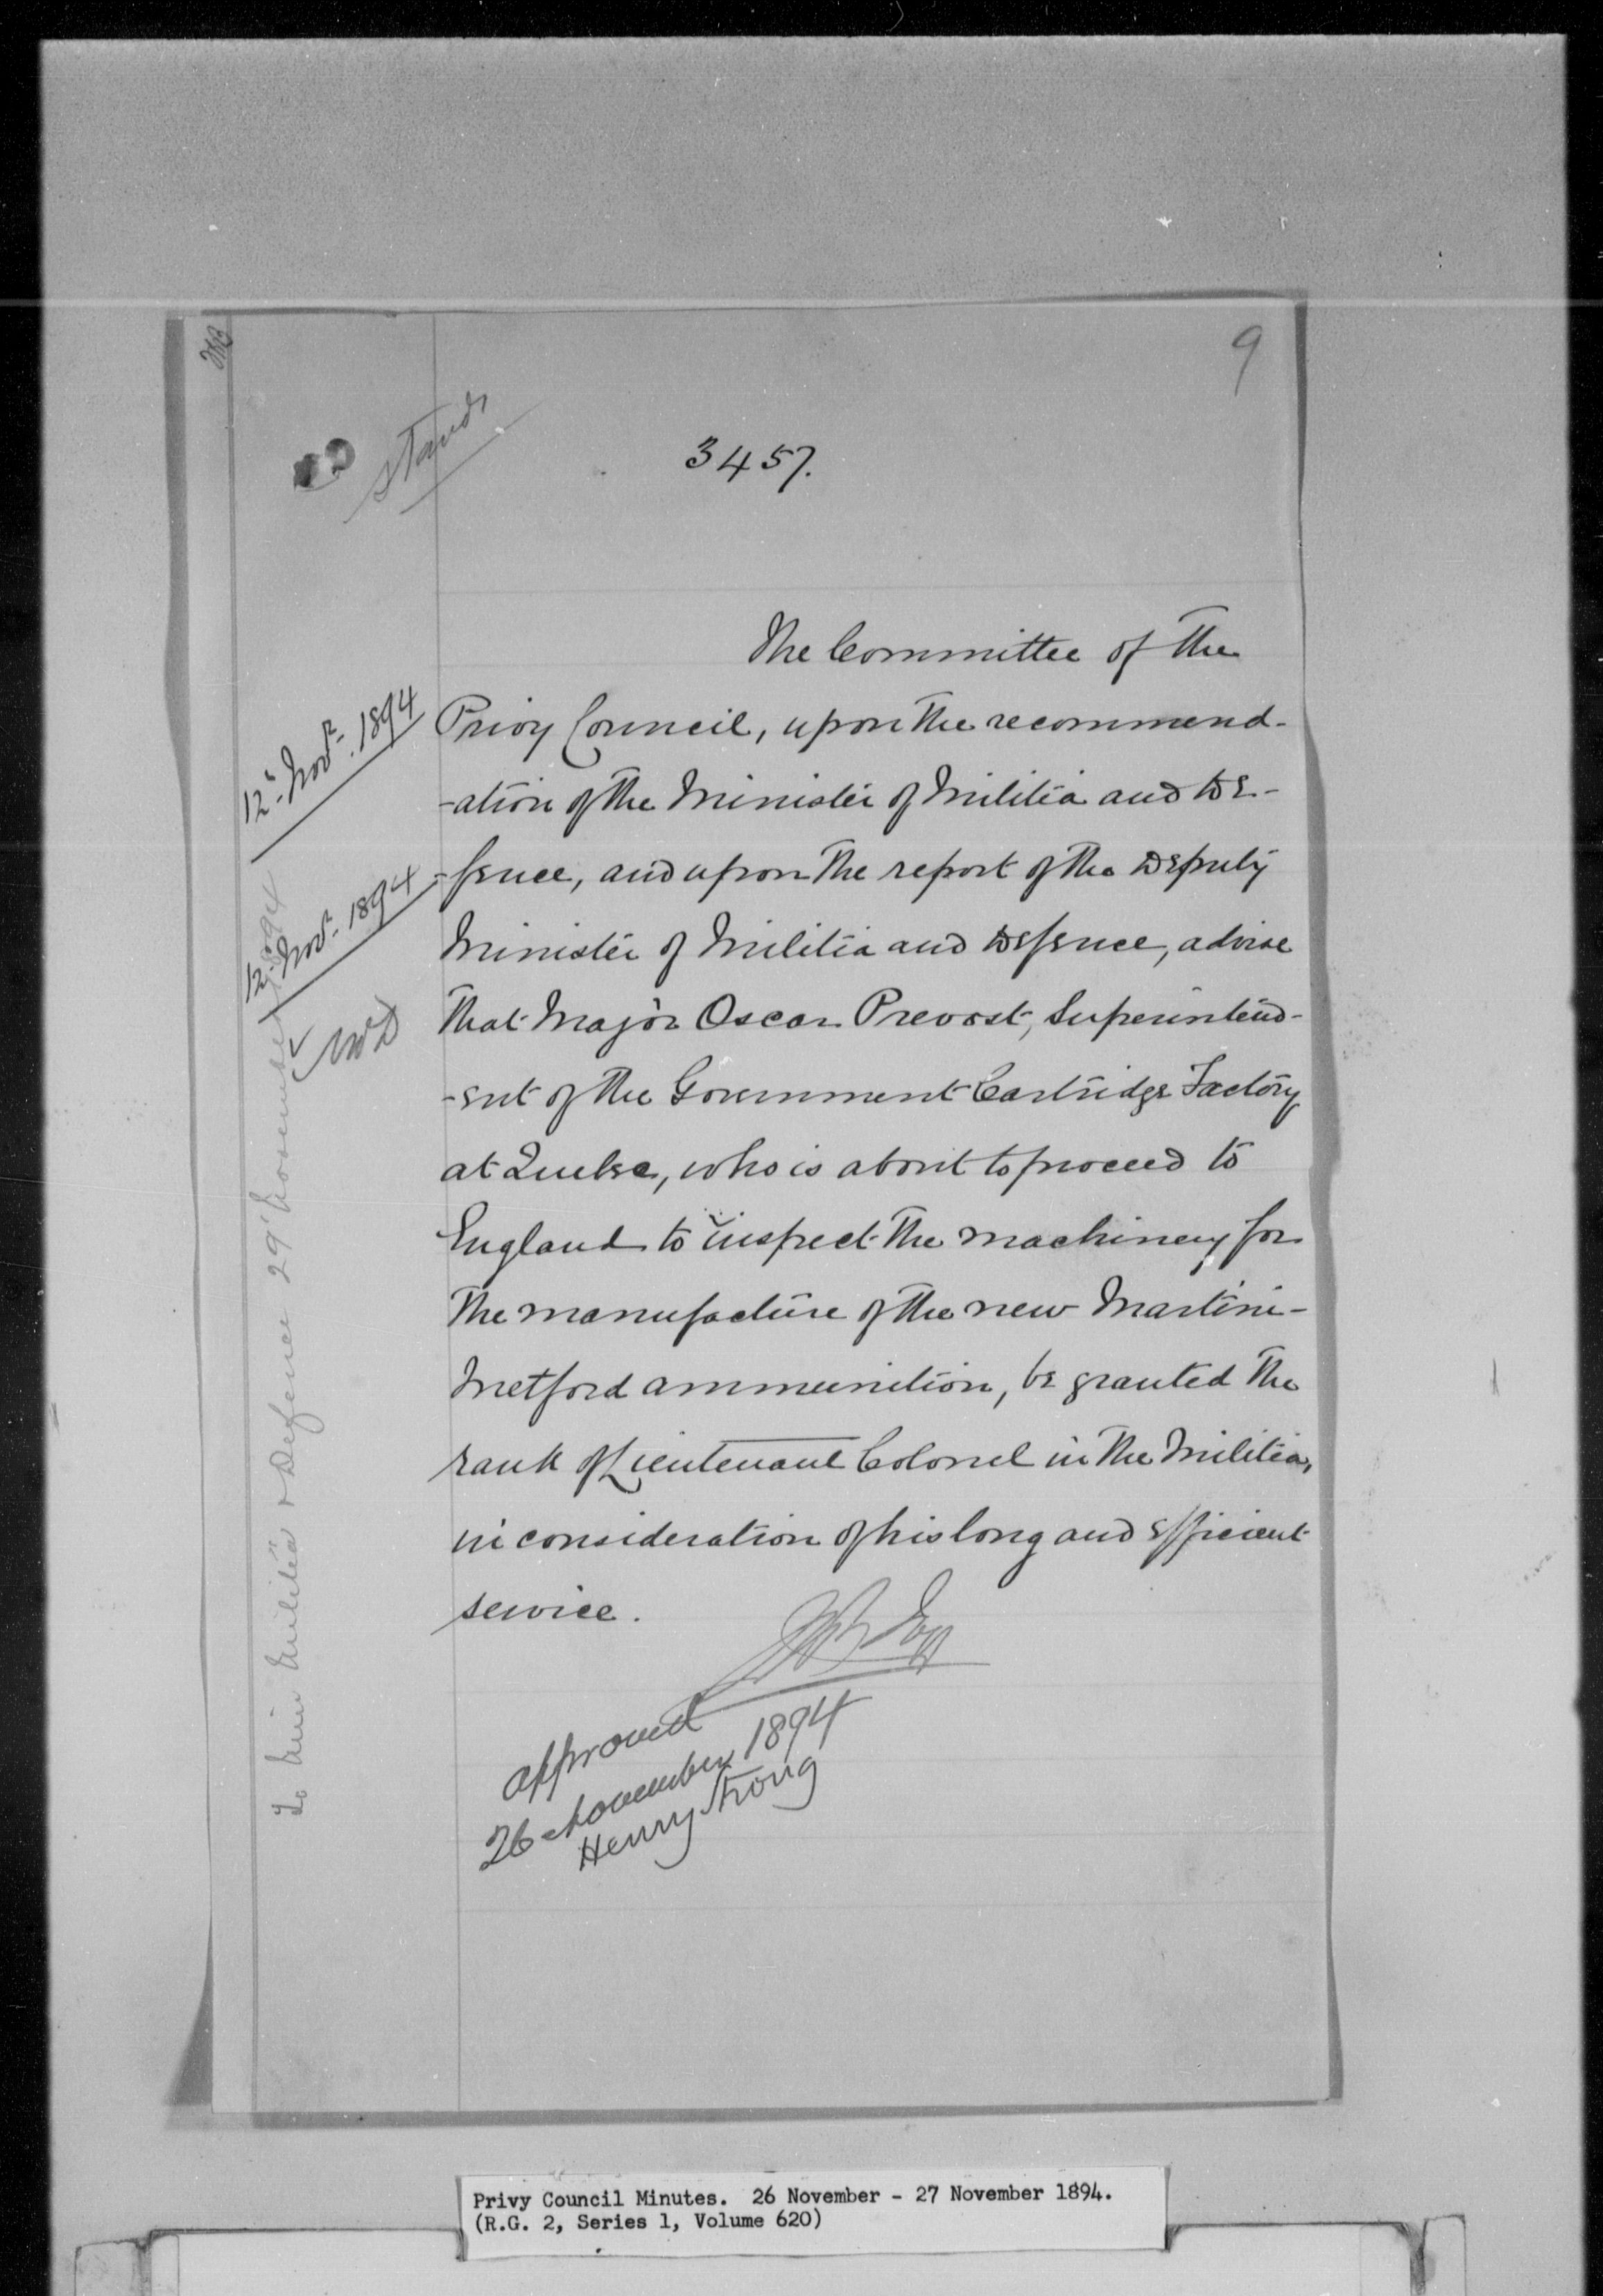 9
Stand
3457.
The Committee of the
Privy Council, upon the recommend-
-ation of the Minister of Militia and De-
-fence, and upon the report of the Deputy
Minister of Militia and Defence, advise
that Major Oscar Prevost, Superintend-
-ent of the Government Cartridge Factory
at Quebec, who is about to proceed to
England to inspect the machinery for
the manufacture of the new Martini-
Metford ammunition, be granted the
rank of Lieutenant Colonel in the Militia,
in consideration of his long and efficient
service.
12 Novr. 1894
12 Novr. 1894
To Min Militia & Defence 29 November 1894
Approved
26 November 1894
Henry Strong
Privy Council Minutes. 26 November - 27 November 1894.
(R.G. 2, Series 1, Volume 620)